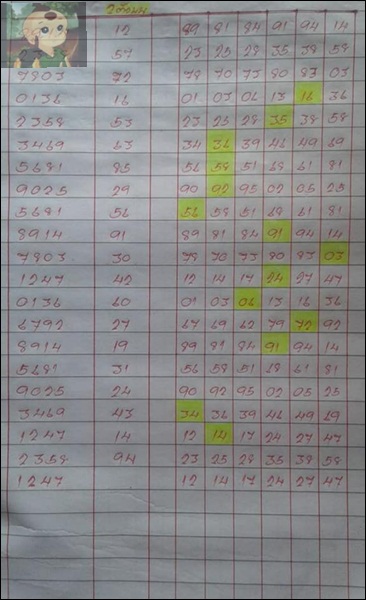 2ตัวบน
12 89 81 84 91 94 14
57 23 25 28 35 38 58
7803 72 78 70 73 80 83 03
0136 16 01 03 06 13 16 36
2358 53 23 25 28 35 38 58
3469 63 34 36 39 46 49 69
5681 85 56 58 51 68 61 81
9025 29 90 92 95 02 05 25
5681 56 56 58 51 68 61 81
8914 91 89 81 84 91 94 14
7803 30 78 70 73 80 83 03
1247 42 12 14 17 24 27 47
0136 60 01 03 06 13 16 36
6792 27 67 69 62 79 72 92
8914 19 89 81 84 91 94 14
5681 31 56 58 51 68 61 81
9025 24 90 92 95 02 05 25
3469 43 34 36 39 46 49 69
1247 14 12 14 17 24 27 47
2358 94 23 25 28 35 38 58
1247 12 14 17 24 27 47